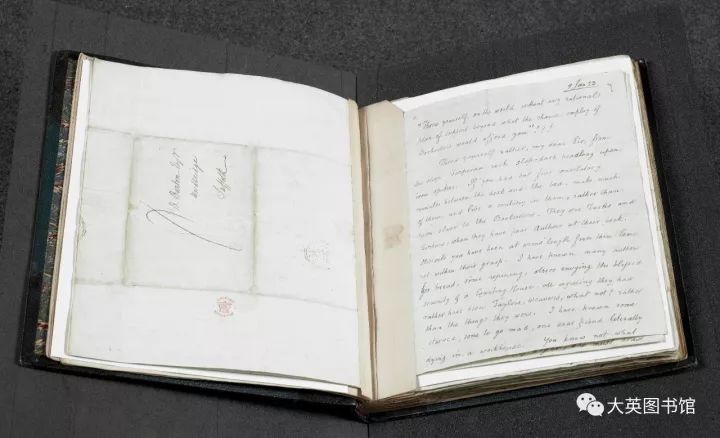 B Barton Esqr
Woodbridge
Suffolk
9 Jan 23
"Throw yourself on the world without any rational
plan of support beyond what the chance employ of
Booksellers would afford you"!!!
Throw yourself rather, my dear Sir, from
the steep Tarpeian rock slap-dash headlong upon
iron spikes. If you had but five consolatory
minutes between the desk and the bed, make much
of them, and live a century in them, rather than
turn slave to the Booksellers. They are Turks and
Tartars when they have poor Authors at their beck.
Hitherto you have been at arms length from them. Come
not within their grasp. I have known many authors
for bread, some repining, others envying the blessed
security of a Counting House, all agreeing they had
rather have been Taylors, Weavers, what not? rather
than the things they were. I have known some
starved, some to go mad, one dear friend literally
dying in a workhouse. You know not what
大英图书馆